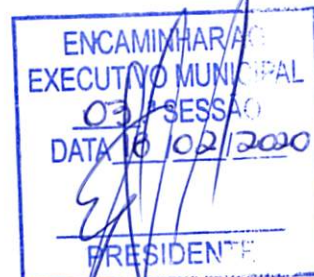 ENCAMINHAR AO
EXECUTIVO MUNICIPAL
03ª SESSÃO
DATA 18/02/2020
PRESIDENTE